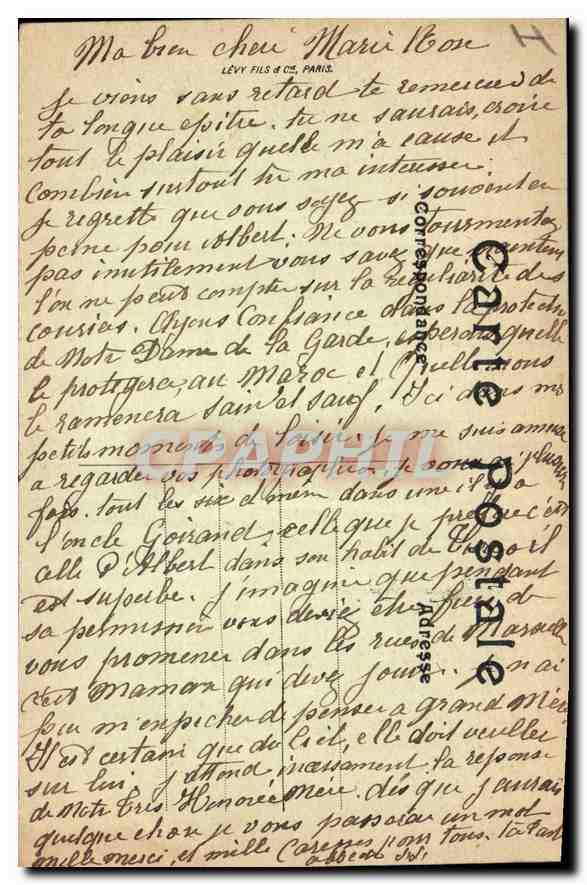 Ma bien cheré Marie Rose
LÉVY FILS & Cie, PARIS.
Je viens sans retard te remercier de
ta longue epitre. tu ne saurais croire
tout le plaisir quelle m'a cause et
combien surtout tu ma interesser.
Je regrette que vous soyez si souvent en
peine pour Albert; Ne vous tourmentez
pas inutilement vous savez que
l'on ne peut compter sur la des
couriers. Ayons Confiance dans la protection
de Notre Dame de la Garde, esperons quelle
le protegera, au Maroc et quelle vous
le ramenera sain et sauf. Ici dans mes
petits moments de loisirs je me suis amusé
a regarder vos photographies, je vous ai plusieurs
fois. tout les six et meme dans une il y a
l'oncle Goirand, celle que je prefère c'est
celle d'Albert dans son habit de il
est superbe. J'imagine que pendant
sa permission vous deviez etre fiers de
vous promener dans les rues de Marseille
c'est Maman qui devez jouir. Je n'ai
pu m'enpecher de penser a grand Mère
Il est certain que du Ciel, elle doit veiller
sur lui. J'attend incessament la reponse
de Notre Très Honorée Mère. dés que j'aurais
quelque chose je vous passerai un mot
Mille merci, et mille Caresses pour tous. ta Tante
CPAPHIL
Carte Postale
Correspondance
Adresse